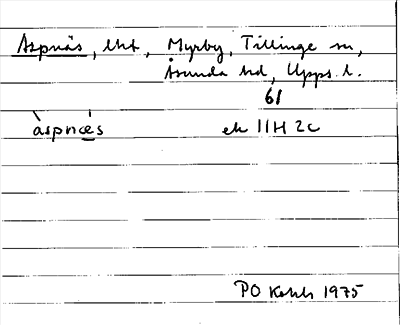 Aspnäs, lht, Myrby, Tillinge sn,
Åsunda hd, Upps. l.
61
àspnæ̀s ek 11H 2c
PO 1975